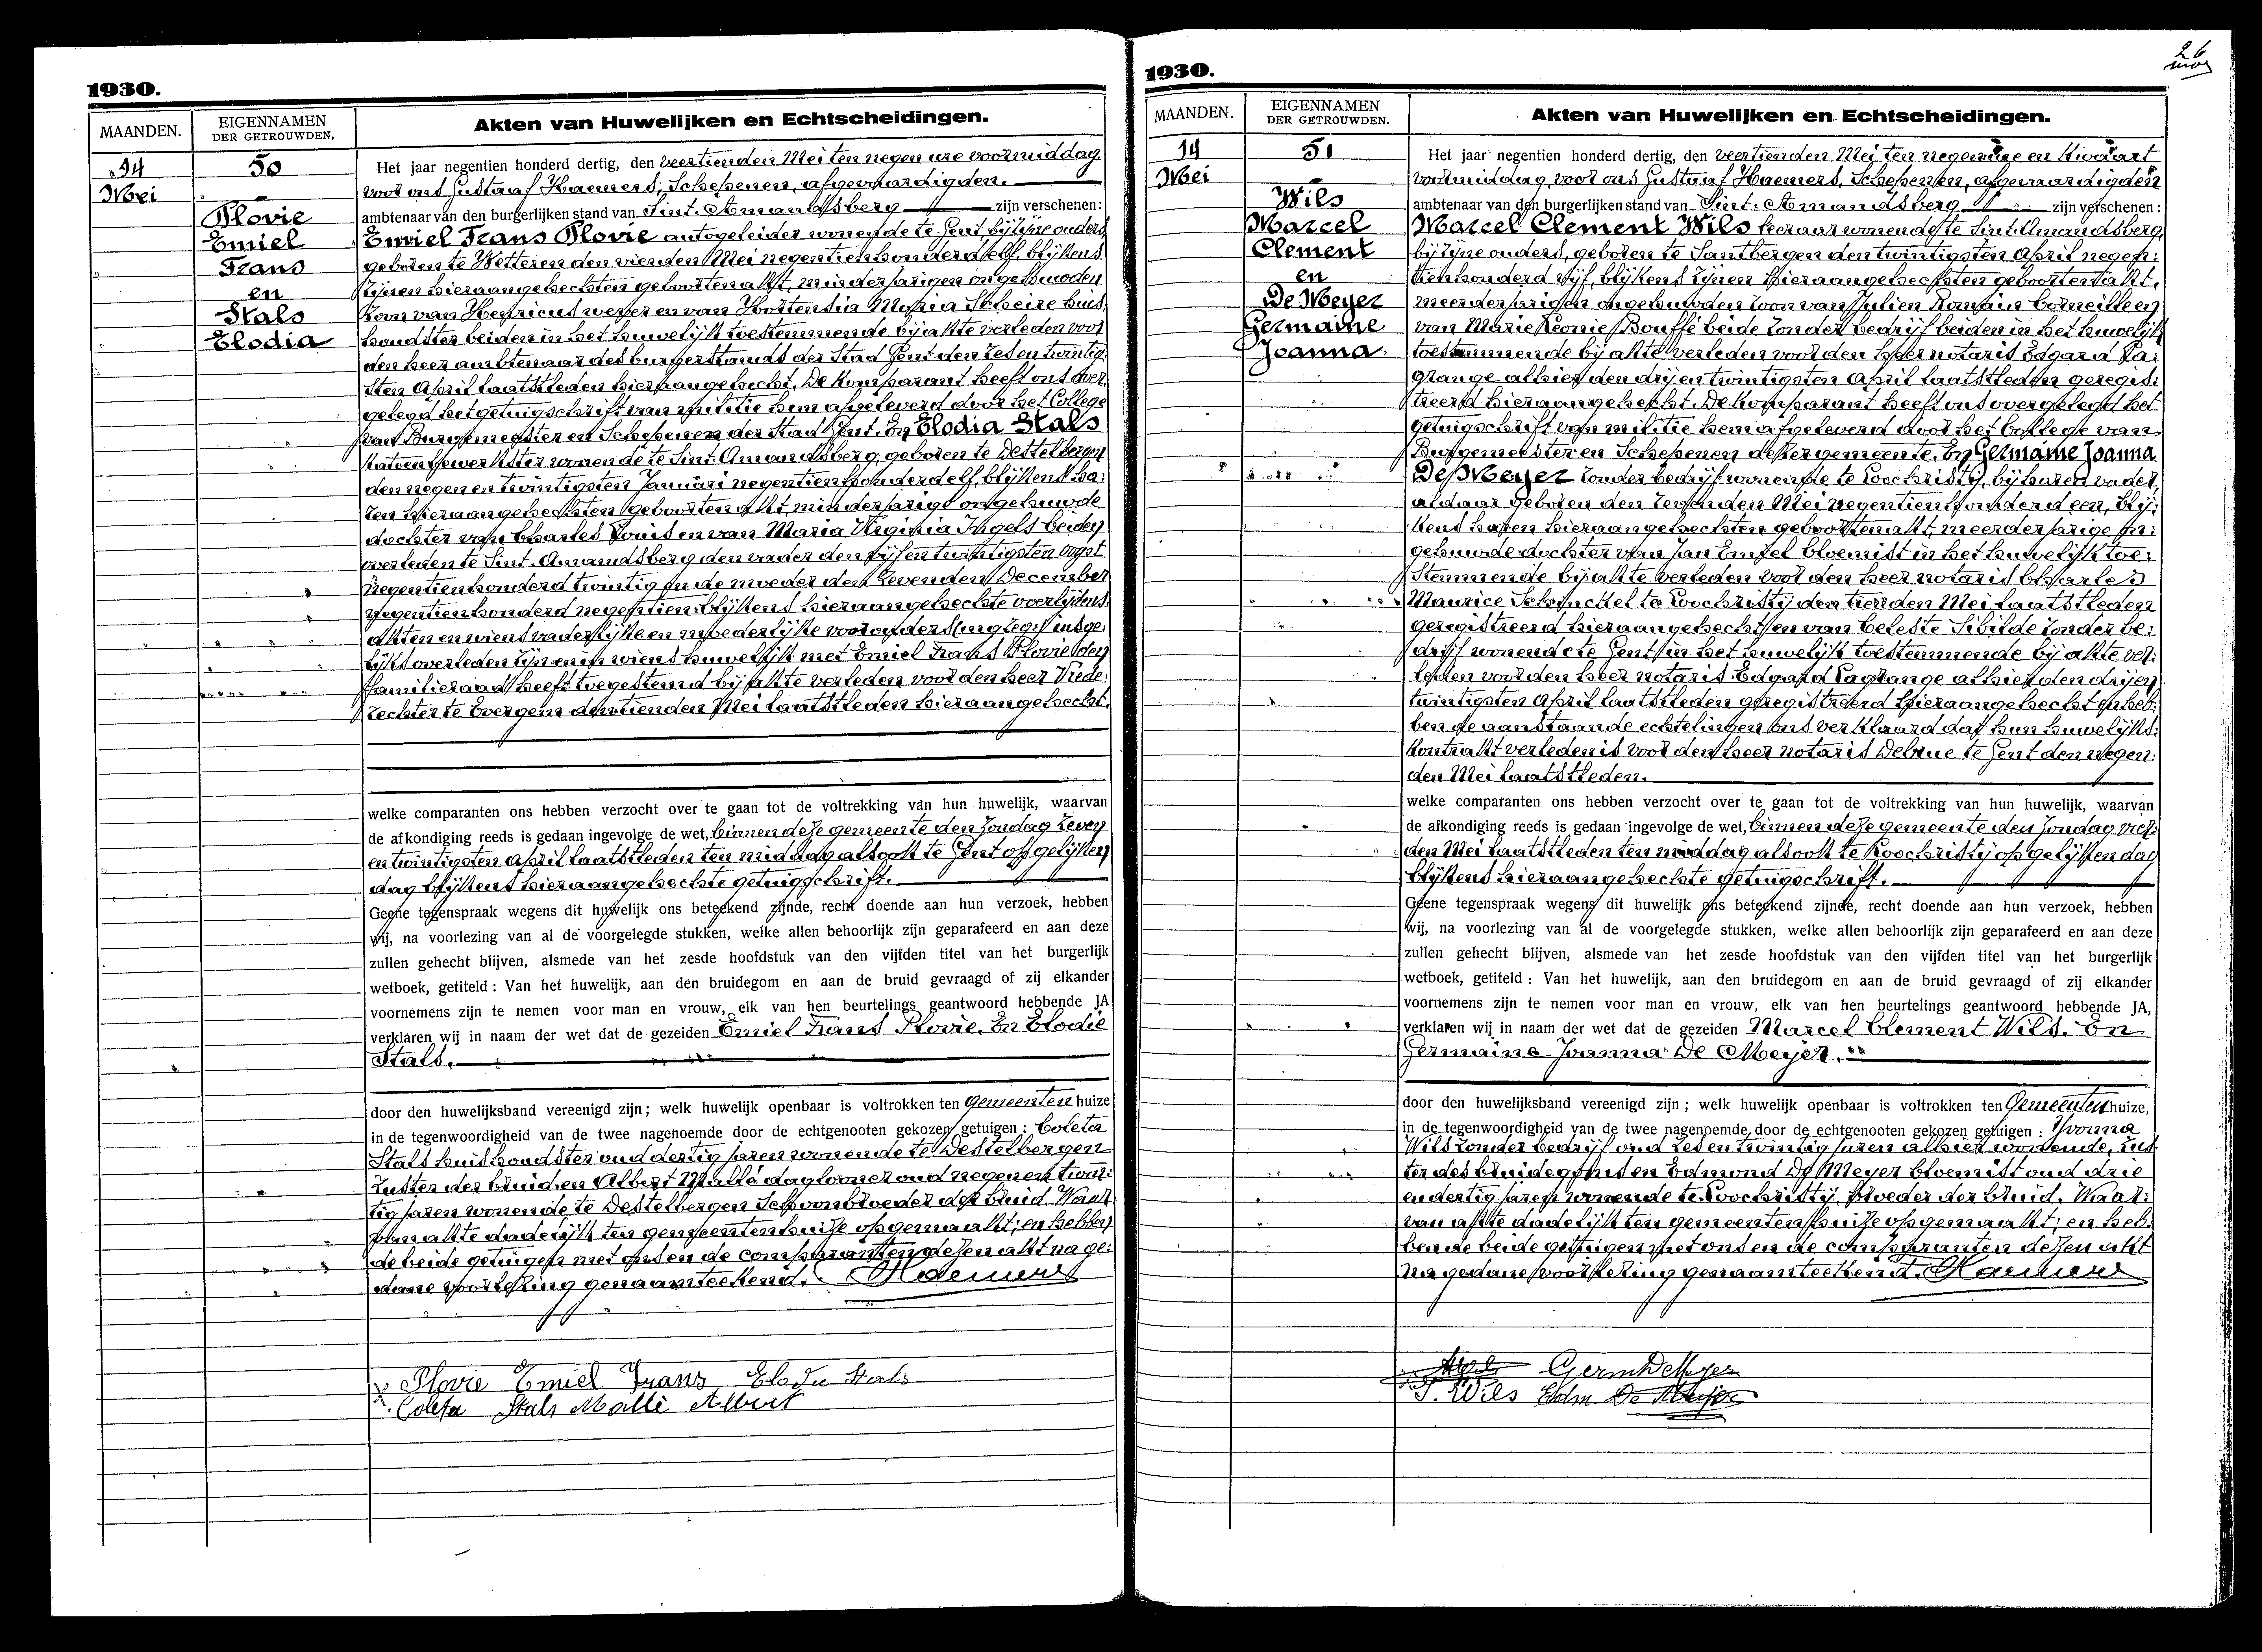 1930.
MAANDEN.
EIGENNAMEN
DER GETROUWDEN,
Akten van Huwelijken en Echtscheidingen.
14
Mei
50
Plovie
Emiel
Frans
en
Stals
Elodia
Het jaar negentien honderd dertig, den veertienden Mei ten negen ure voormiddag
voor ons Gustaaf Haemers, Schepenen, afgevaardigden.
ambtenaar van den burgerlijken stand van Sint. Amandsberg zijn verschenen:
Emiel Frans Plovie autogeleider wonende te Gent, bij zijne ouders
geboren te Wetteren den vierden Mei negentienhonderd elf, blijkens
zijnen hieraangehechten geboortenakt, minderjarigen ongehuwden
zoon van Henricus wever en van Hortensia Maria Scheire huis:
houdster beiden in het huwelijk toestemmende bij akte verleden voor
den heer ambtenaar des burgerstands der Stad Gent den zes en twintig:
sten April laatstleden hieraangehecht. De komparant heeft ons over:
gelegd het getuigschrift van militie hem afgeleverd door het College
van Burgemeester en Schepenen der Stad Gent. En Elodia Stals
katoenbewerkster wonende te Sint. Amandsberg, geboren te Destelbergen
den negen en twintigsten Januari negentienhonderd elf, blijkens ha:
ren hieraangehechten geboortenakt, minderjarige ongehuwde
dochter van Charles Louis en van Maria Virginia Ingels beiden
overleden te Sint. Amandsberg den vader den vijf en twintigsten oogst
negentienhonderd twintig en de moeder den zevenden December
negentienhonderd negentien blijkens hieraangehechte overlijdens:
akten en wiens vaderlijke en moederlijke voorouders insge:
lijks overleden zijn en in wiens huwelijk met Emiel Frans Plovie den
familieraad heeft toegestemd bij akte verleden voor den heer Vrede:
rechter te Evergem den tienden Mei laatstleden hieraangehecht.
welke comparanten ons hebben verzocht over te gaan tot de voltrekking van hun huwelijk, waarvan
de afkondiging reeds is gedaan ingevolge de wet, binnen deze gemeente den Zondag zeven
en twintigsten April laatstleden ten middag alsook te Gent op gelijken
dag blijkens hieraangehechte getuigschrift.
Geene tegenspraak wegens dit huwelijk ons beteekend zijnde, recht doende aan hun verzoek, hebben
wij, na voorlezing van al de voorgelegde stukken, welke allen behoorlijk zijn geparafeerd en aan deze
zullen gehecht blijven, alsmede van het zesde hoofdstuk van den vijfden titel van het burgerlijk
wetboek, getiteld : Van het huwelijk, aan den bruidegom en aan de bruid gevraagd of zij elkander
voornemens zijn te nemen voor man en vrouw, elk van hen beurtelings geantwoord hebbende JA
verklaren wij in naam der wet dat de gezeiden Emiel Frans Plovie. En Elodie
Stals.
door den huwelijksband vereenigd zijn; welk huwelijk openbaar is voltrokken ten Gemeenten huize
in de tegenwoordigheid van de twee nagenoemde door de echtgenooten gekozen getuigen : Coleta
Stals huishoudster oud dertig jaren wonende te Destelbergen
zuster der bruid en Albert Mallé daglooner oud negen en twin:
tig jaren wonende te Destelbergen Schoonbroeder der bruid. Waar
van akte dadelijk ten gemeentenhuize opgemaakt; en hebben
de beide getuigen met ons en de comparanten dezen akt na ge:
dane voorlezing genaamteekend. Haemers
Plovie Emiel Frans Elodie Stals
Coleta Stals Mallé Albert
26
1930.
MAANDEN.
EIGENNAMEN
DER GETROUWDEN.
Akten van Huwelijken en Echtscheidingen.
14
Mei
51
Wils
Marcel
Clement
en
De Meyer
Germaine
Joanna.
Het jaar negentien honderd dertig, den veertienden Mei ten negen ure en kwaart
voormiddag, voor ons Gustaaf Haemers, Schepenen, afgevaardigden
ambtenaar van den burgerlijken stand van Sint. Amandsberg zijn verschenen :
Marcel Clement Wils leeraar wonende te Sint. Amandsberg,
bij zijne ouders, geboren te Santbergen den twintigsten April negen:
tienhonderd vijf, blijkens zijnen hieraangehechten geboortenakt,
meerderjarigen ongehuwden zoon van Julien Romain Corneille en
van Marie Leonie Bouffé beide zonder bedrijf beiden in het huwelijk
toestemmende bij akte verleden voor den heer notaris Edgard La:
grange alhier den drij en twintigsten April laatstleden geregis:
treerd hieraangehecht. De komparant heeft ons overgelegd het
getuigschrift van militie hem afgeleverd door het College van
Burgemeester en Schepenen dezer gemeente. En Germaine Joanna
De Meyer zonder bedrijf wonende te Loochristy, bij haren vader,
aldaar geboren den zevenden Mei negentienhonderd een, blij:
kens haren hieraangehechten geboortenakt, meerderjarige on:
gehuwde dochter van Jan Emiel bloemist in het huwelijk toe:
stemmende bij akte verleden voor den heer notaris Charles
Maurice Schynckel te Loochristij den tienden Mei laatstleden
geregistreerd hieraangehecht en van Celeste Sibilde zonder be:
drijf wonende te Gent in het huwelijk toestemmende bij akte ver:
leden voor den heer notaris Edgard Lagrange alhier den drij en
twintigsten April laatstleden geregistreerd hieraangehecht en heb:
ben de aanstaande echtelingen ons verklaard dat hun huwelijks:
kontrakt verleden is voor den heer notaris Debrue te Gent den negen:
den Mei laatstleden.
welke comparanten ons hebben verzocht over te gaan tot de voltrekking van hun huwelijk, waarvan
de afkondiging reeds is gedaan ingevolge de wet, binnen deze gemeente den Zondag vier:
den Mei laatstleden ten middag alsook te Loochristij op gelijken dag
blijkens hieraangehechte getuigschrift.
Geene tegenspraak wegens dit huwelijk ons beteekend zijnde, recht doende aan hun verzoek, hebben
wij, na voorlezing van al de voorgelegde stukken, welke allen behoorlijk zijn geparafeerd en aan deze
zullen gehecht blijven, alsmede van het zesde hoofdstuk van den vijfden titel van het burgerlijk
wetboek, getiteld : Van het huwelijk, aan den bruidegom en aan de bruid gevraagd of zij elkander
voornemens zijn te nemen voor man en vrouw, elk van hen beurtelings geantwoord hebbende JA,
verklaren wij in naam der wet dat de gezeiden Marcel Clement Wils. En
Germaine Joanna De Meyer.
door den huwelijksband vereenigd zijn ; welk huwelijk openbaar is voltrokken ten Gemeenten huize,
in de tegenwoordigheid van de twee nagenoemde door de echtgenooten gekozen getuigen : Yvonna
Wils zonder bedrijf oud zes en twintig jaren alhier wonende, zus
ter des bruidegoms en Edmond De Meyer bloemist oud drie
en dertig jaren wonende te Loochristij, broeder der bruid. Waar:
van akte dadelijk ten gemeentenhuize opgemaakt; en heb:
ben de beide getuigen met ons en de comparanten dezen akt
na gedane voorlezing genaamteekend. Haemers
Germ De Meyer
Wils Edm De Meyer